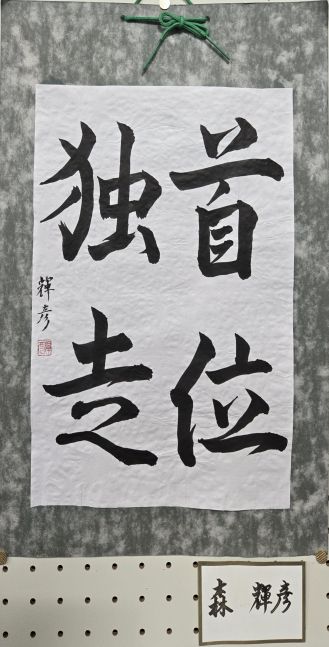 首位
独走
輝彦
森 輝彦